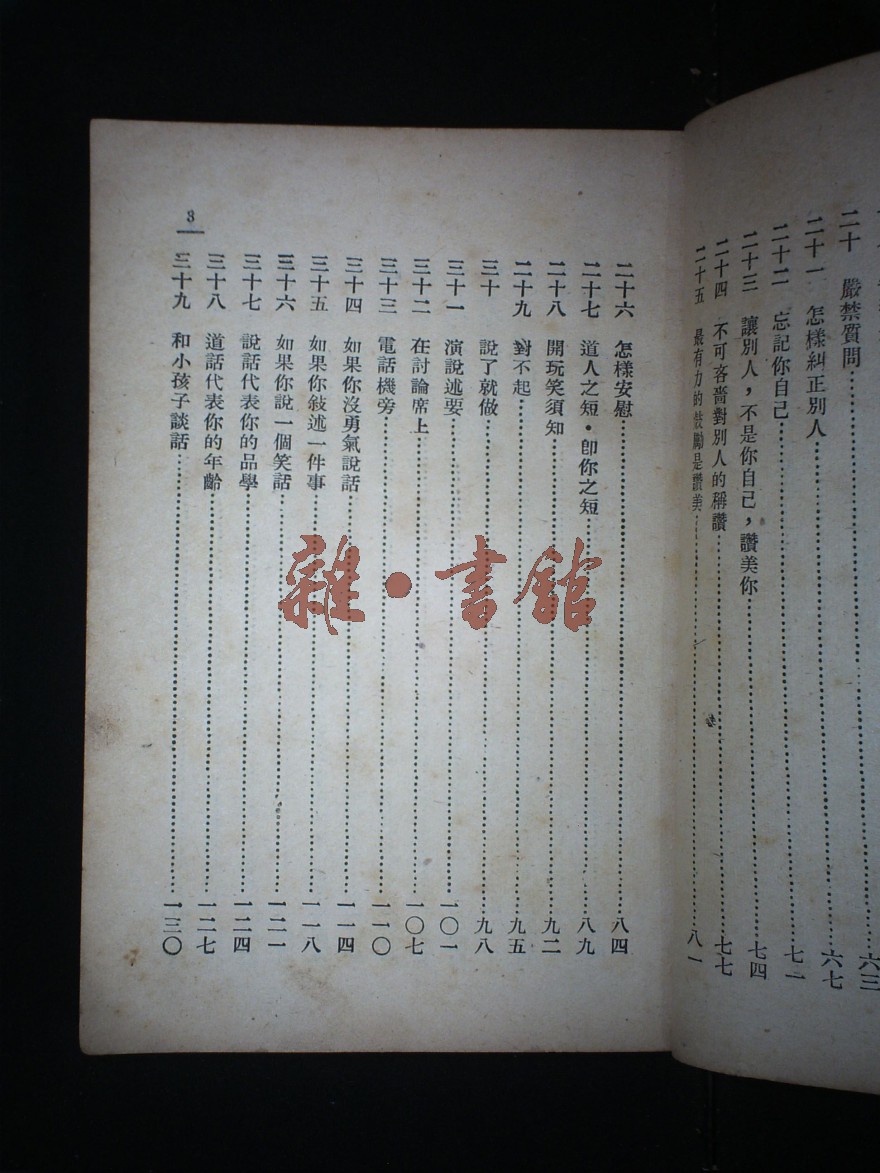 二十 嚴禁質問 六三
二十一 怎樣糾正別人 六七
二十二 忘記你自己 七一
二十三 讓別人，不是你自己，讚美你 七四
二十四 不可吝嗇對別人的稱讚 七七
二十五 最有力的鼓勵是讚美 八一
3
二十六 怎樣安慰 八四
二十七 道人之短・卽你之短 八九
二十八 開玩笑須知 九二
二十九 對不起 九五
三十 說了就做 九八
三十一 演說述要 一〇一
三十二 在討論席上 一〇七
三十三 電話機旁 一一〇
三十四 如果你沒勇氣說話 一一四
三十五 如果你敍述一件事 一一八
三十六 如果你說一個笑話 一二一
三十七 說話代表你的品學 一二四
三十八 道話代表你的年齡 一二七
三十九 和小孩子談話 一三〇
雜・書館